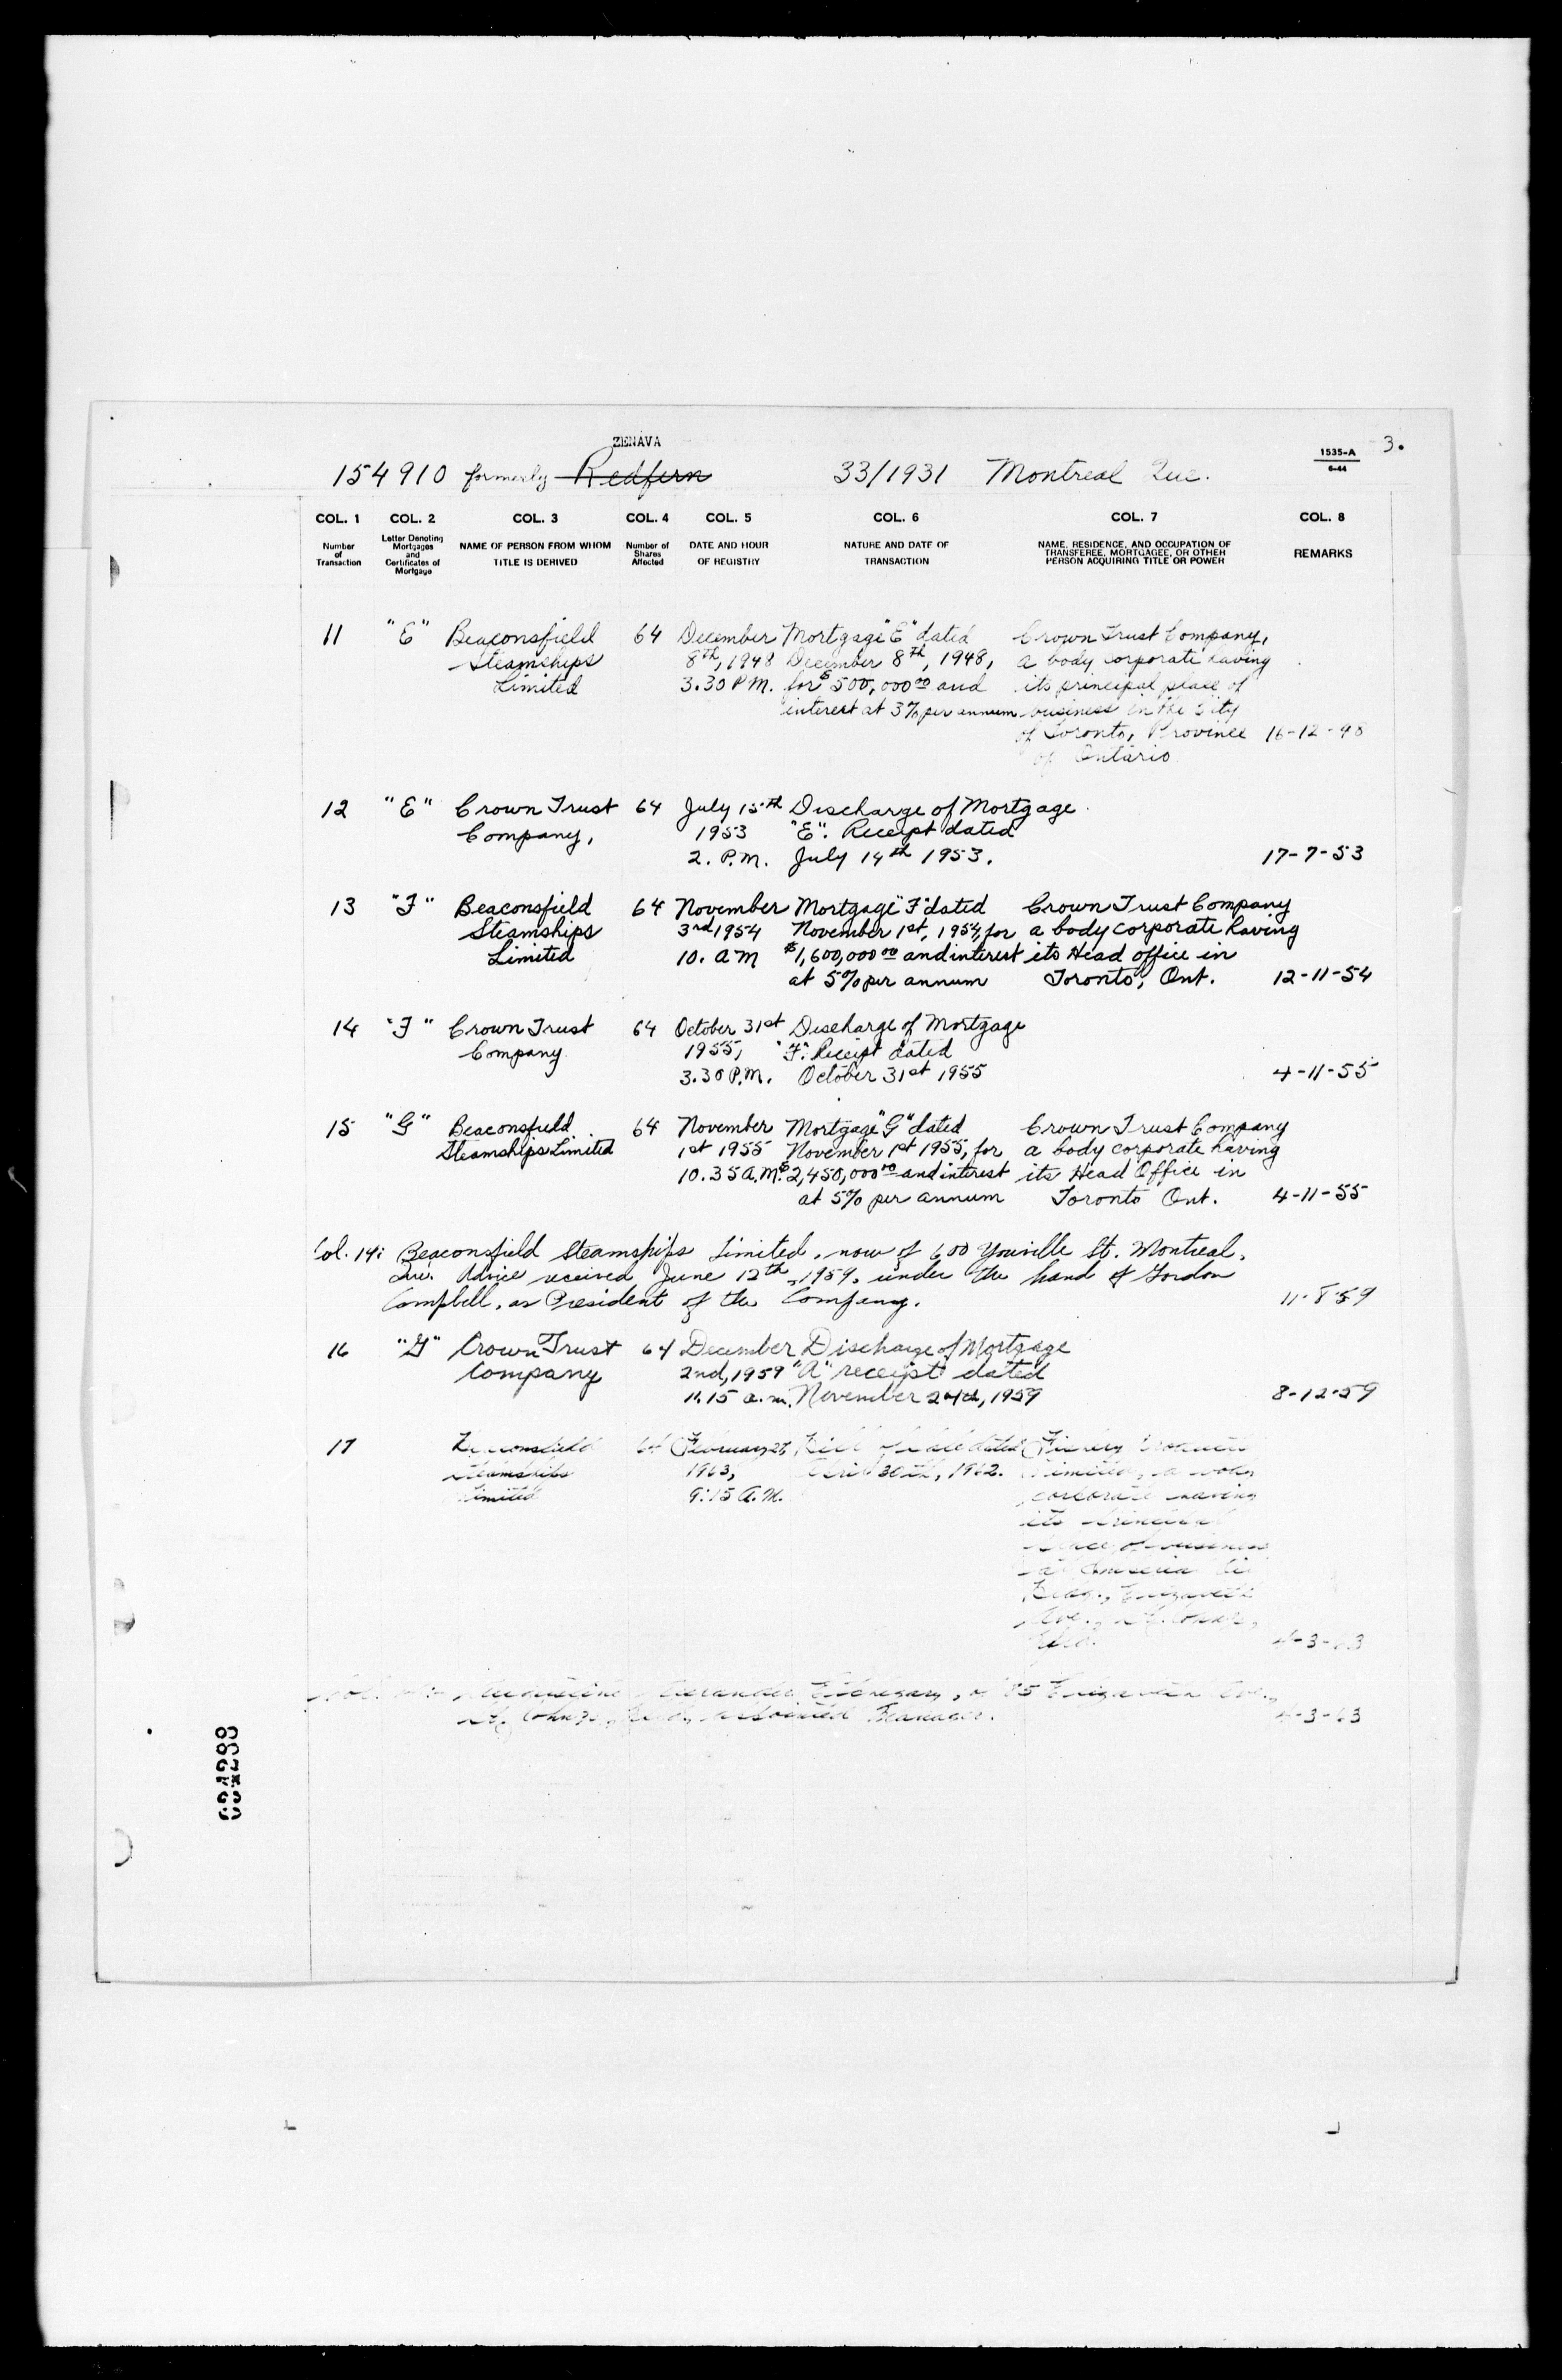 ZENAVA
3.
154910 formerly Redfern 33/1931 Montreal Que.
1535-A
6-44
COL. 1 COL. 2 COL. 3 COL. 4 COL. 5 COL. 6 COL. 7 COL. 8
Number of Transaction
Letter Denoting Mortgages and Certificates of Mortgage
NAME OF PERSON FROM WHOM TITLE IS DERIVED
Number of Shares Affected
DATE AND HOUR OF REGISTRY
NATURE AND DATE OF TRANSACTION
NAME, RESIDENCE, AND OCCUPATION OF TRANSFEREE, MORTGAGEE, OR OTHER PERSON ACQUIRING TITLE OR POWER
REMARKS
11 "E" Beaconsfield 64 December Mortgage "E" dated Crown Trust Company,
Steamships 8th, 1948 December 8th, 1948, a body corporate having
Limited 3.30 P.M. for $500,000 00 and its principal place of
interest at 3% per annum business in the City
of Toronto, Province 16-12-48
of Ontario
12 "E" Crown Trust 64 July 15th Discharge of Mortgage
Company, 1953 "E". Receipt dated
2. P.M. July 14th 1953. 17-7-53
13 "F" Beaconsfield 64 November Mortgage "F" dated Crown Trust Company
Steamships 3rd 1954 November 1st, 1954, for a body corporate having
Limited 10. A M $1,600,000 00 and interest its Head office in
at 5% per annum Toronto, Ont. 12-11-54
14 "F" Crown Trust 64 October 31st Discharge of Mortgage
Company. 1955, "F". Receipt dated
3.30 P.M. October 31st 1955 4-11-55
15 "G" Beaconsfield 64 November Mortgage "G" dated Crown Trust Company
Steamships Limited 1st 1955 November 1st 1955, for a body corporate having
10.35 A.M. $2,450,000 00 and interest its Head Office in
at 5% per annum Toronto Ont. 4-11-55
Col. 14: Beaconsfield Steamships Limited, now of 600 Youville St. Montreal,
Que. Advice received June 12th, 1959, under the hand of Gordon
Campbell, as President of the Company. 11-8-59
16 "G" Crown Trust 64 December Discharge of Mortgage
Company 2nd, 1959 "A" receipt dated
11.15 a.m. November 1959 8-12-59
17 Beaconsfield 64 February Bill of Sale dated Fishery Products
Steamships 1963, April 30th, 1962. Limited, a body
Limited 9:15 A.M. corporate having
its principal
place of business
at
Bldg., Elizabeth
Ave., St. John's,
Nfld. 4-3-63
of Elizabeth Ave.,
St. John's, Nfld., Manager. 4-3-63